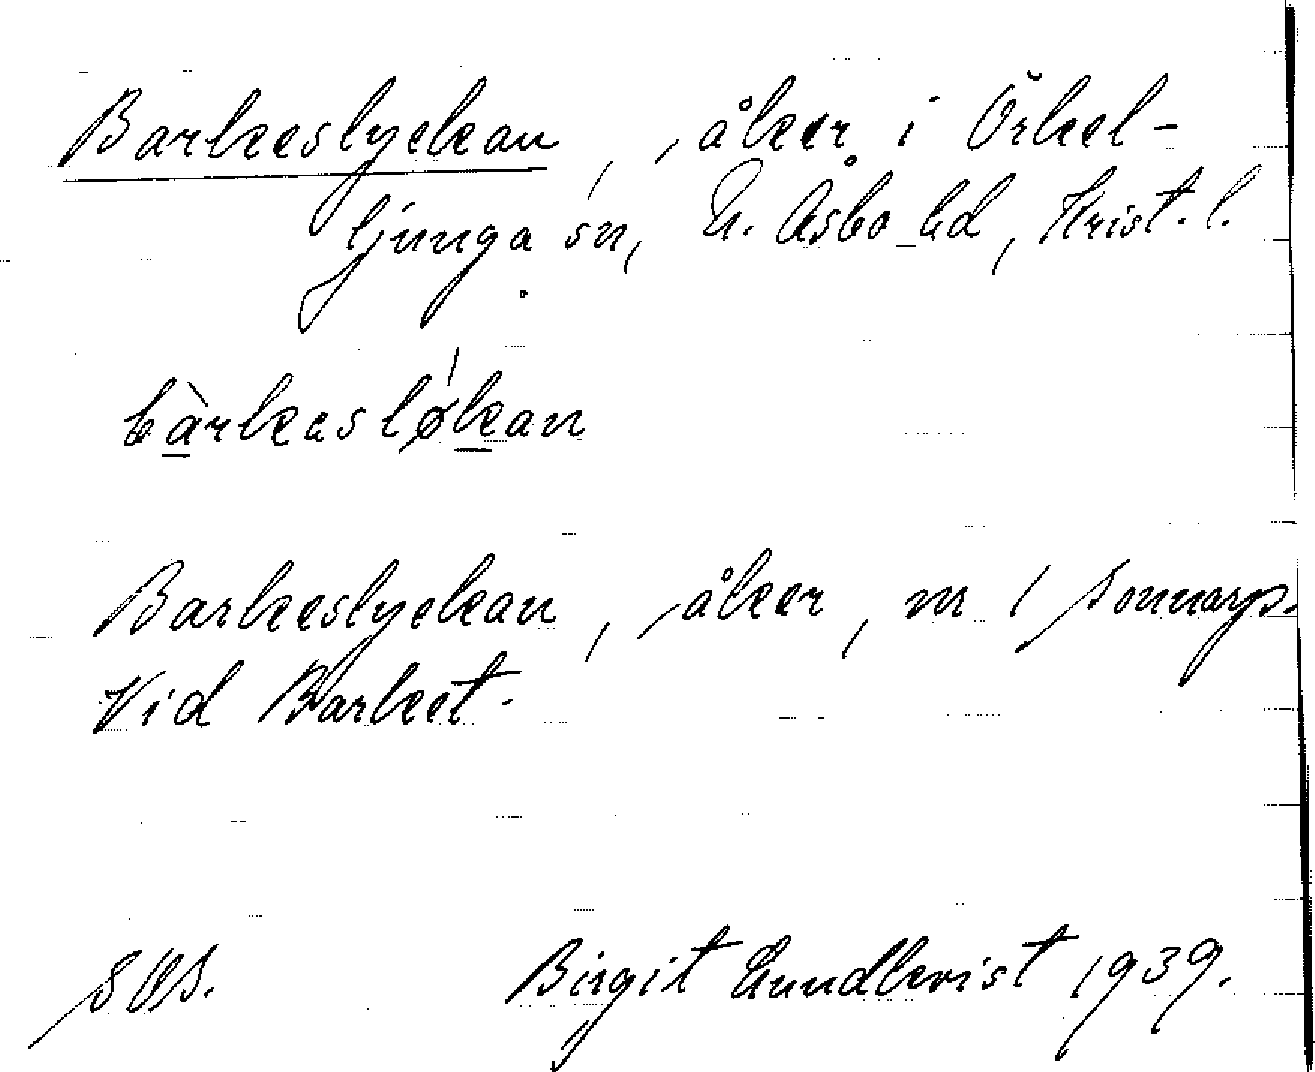 Barkeslyckan, åker i Örkel-
ljunga sn, N. Åsbo hd, Krist. l.
bàrkasløkan
Barkeslyckan, åker, nr 1 Sonnarp.
Vid Barket.
Birgit Lundkvist 1939.